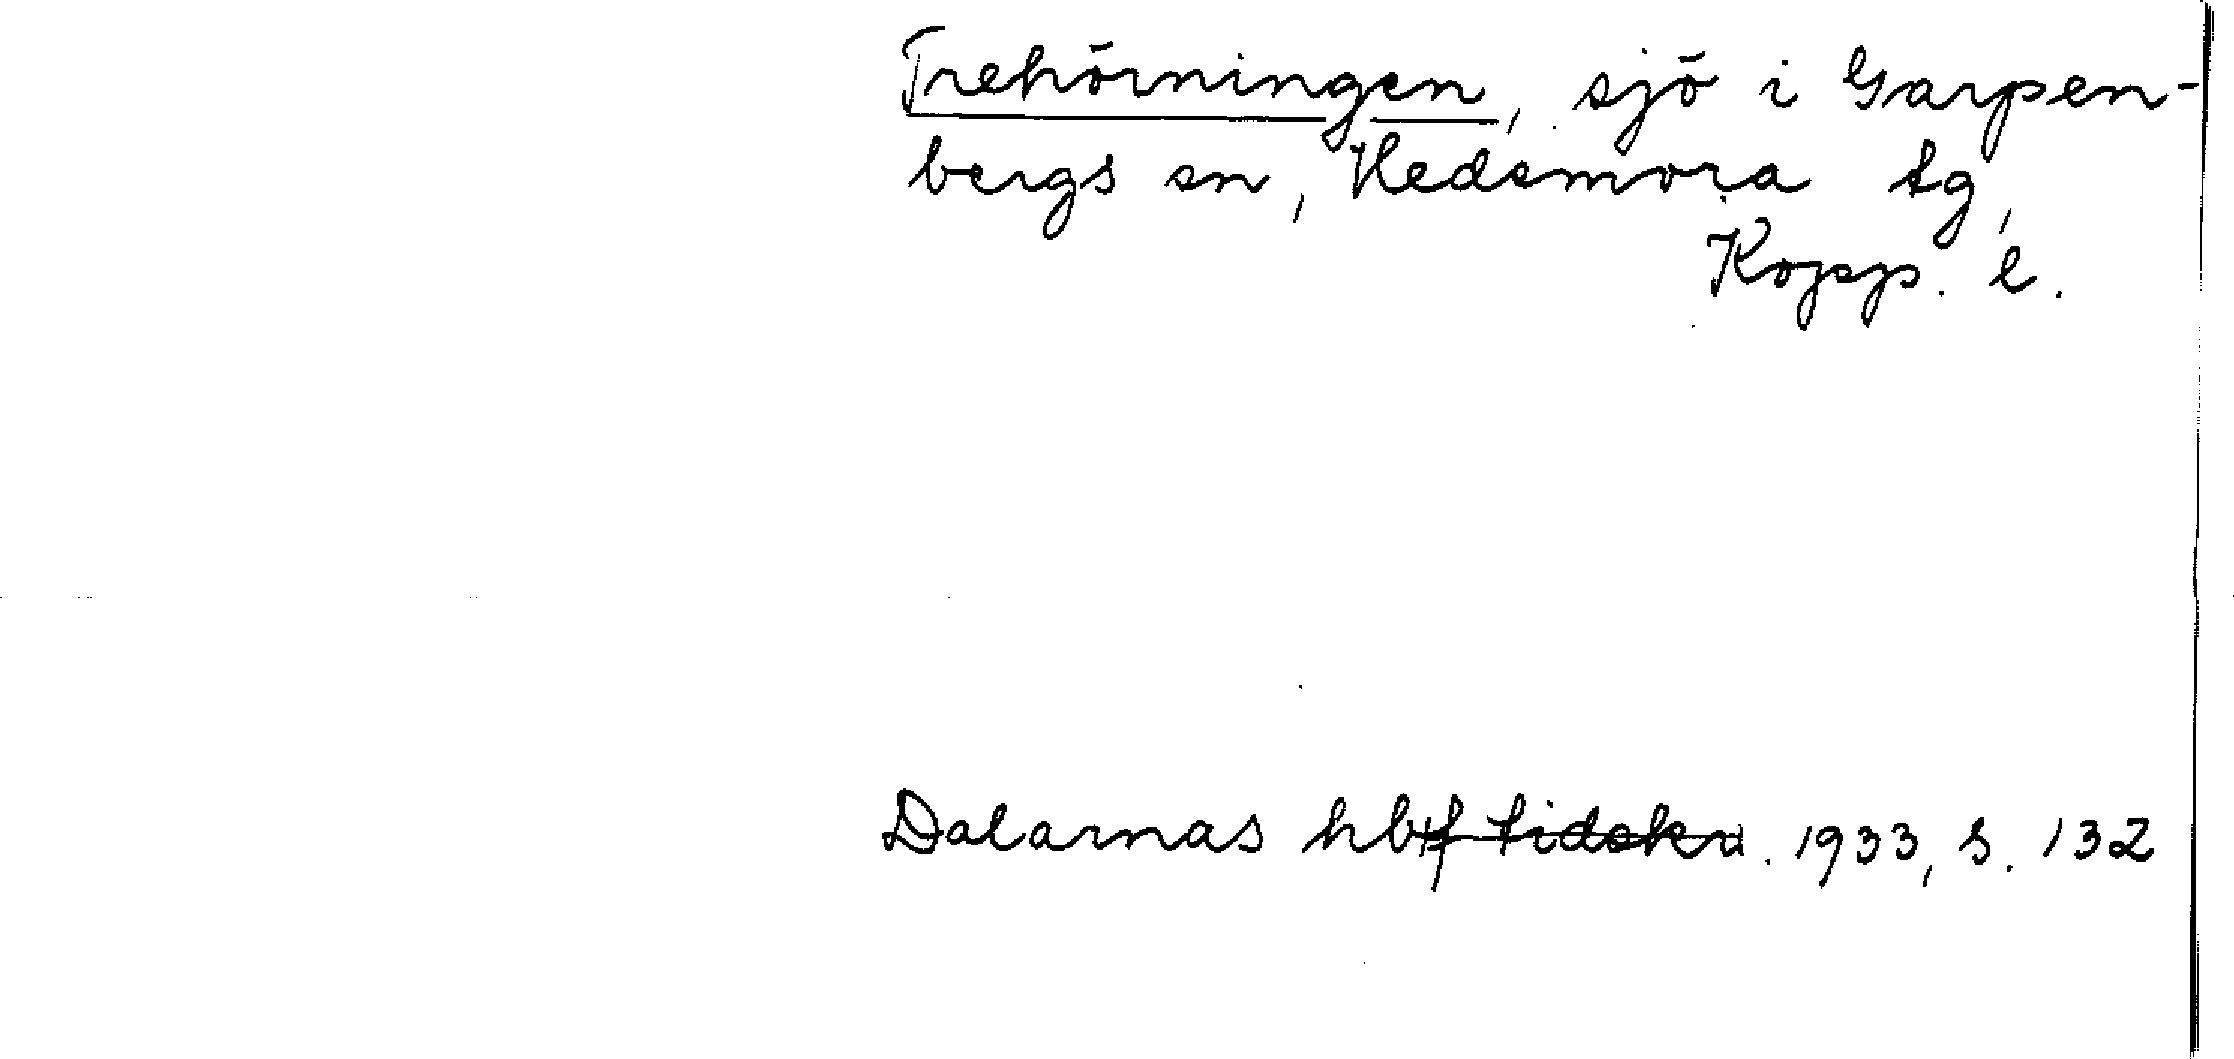 Trehörningen, sjö i Garpen-
bergs sn, Hedemora tg,
Kopp. l.
Dalarnas hbf tidskr. 1933, s. 132